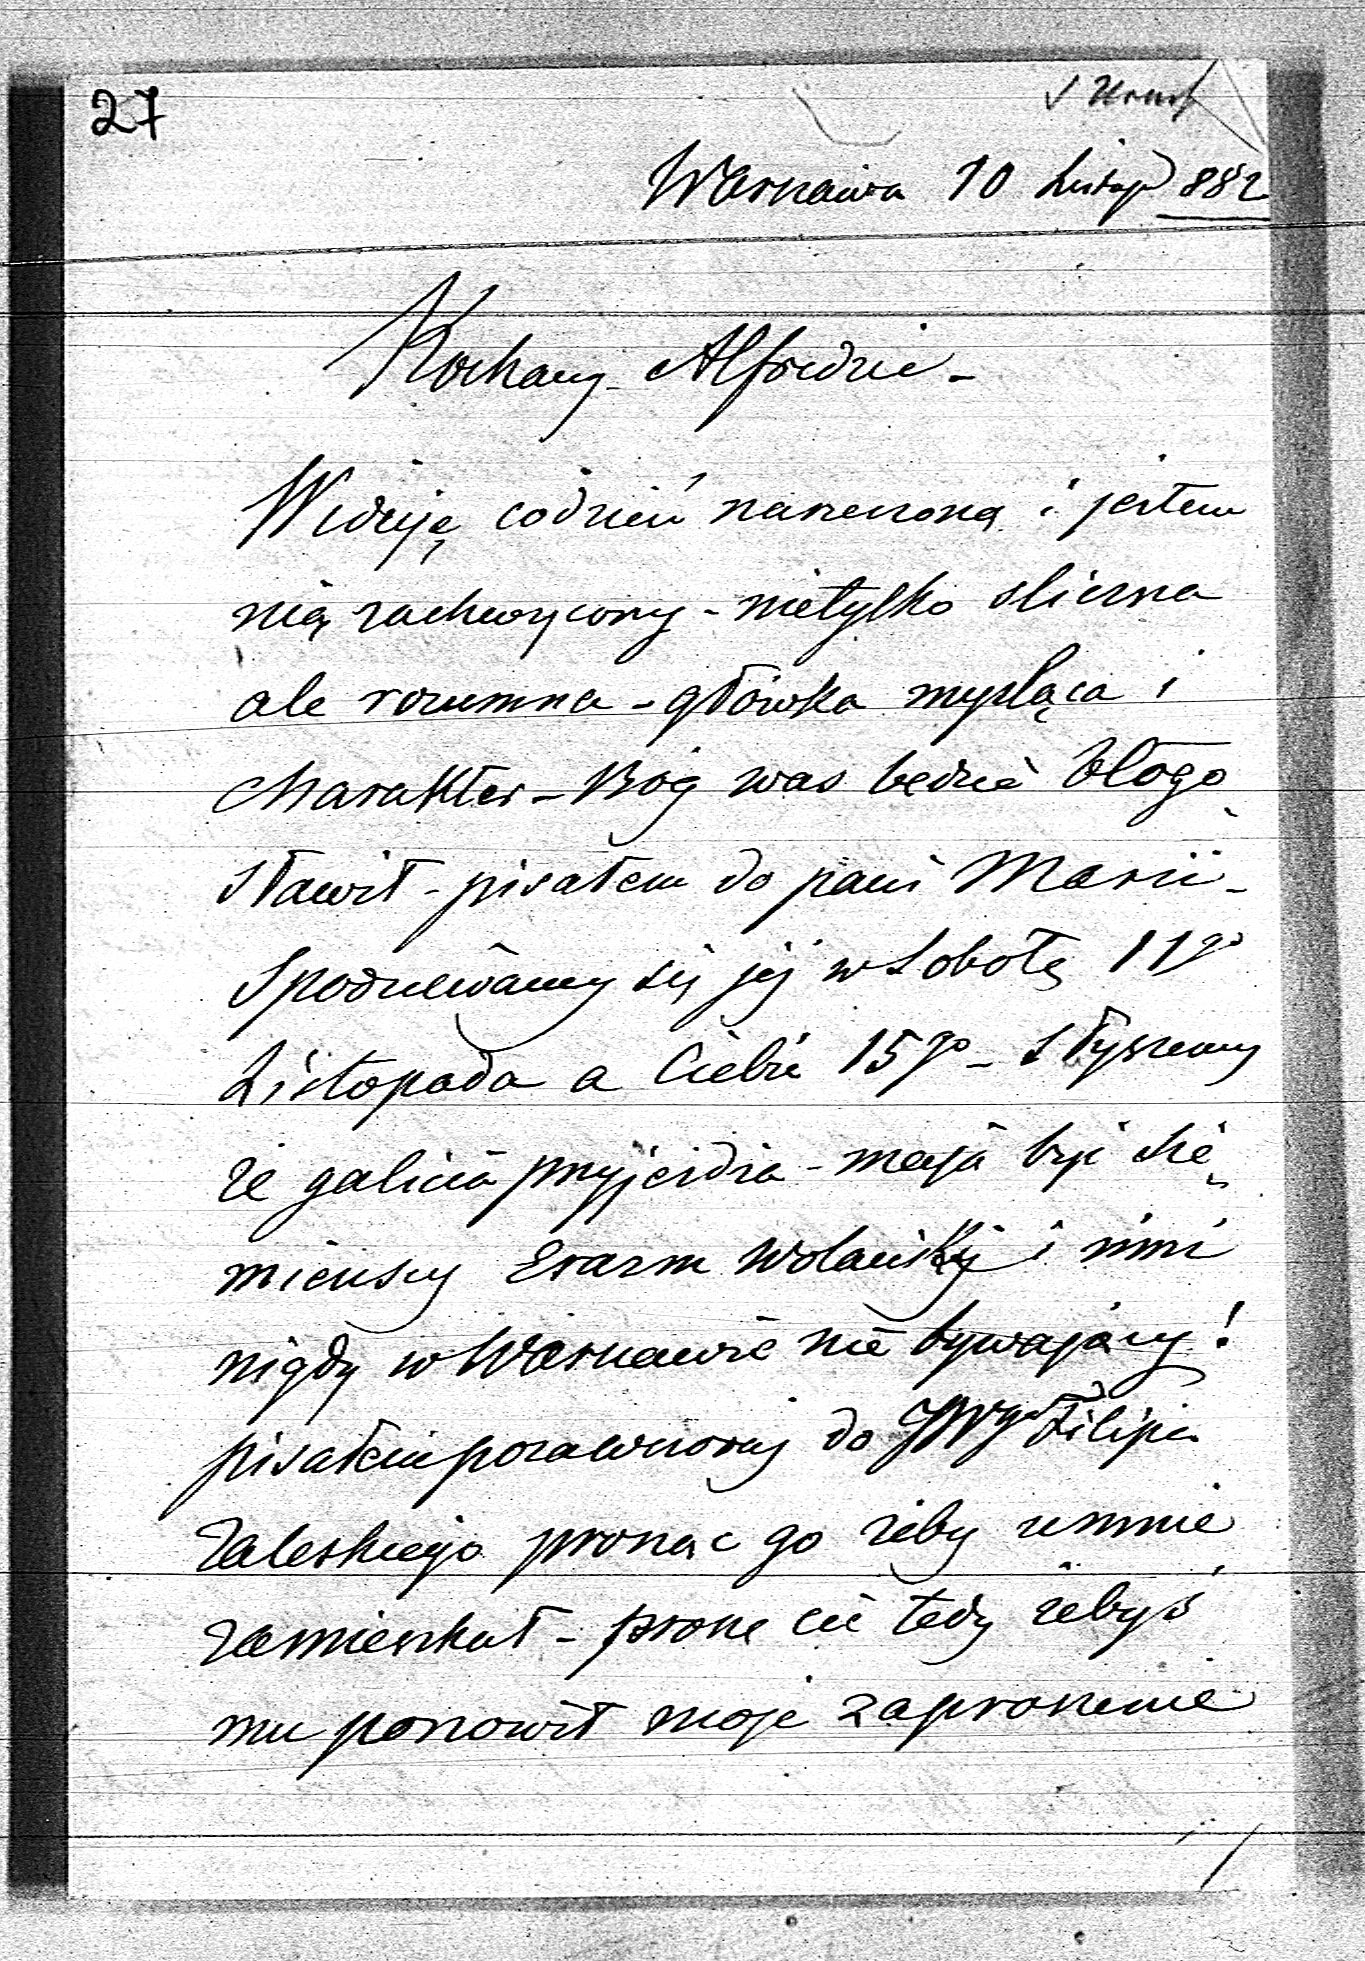 27
Warszawa 10 Listop 882
Kochany Alfredzie -
Widuję codzień narzeczoną i jestem
nią zachwycony - nietylko sliczna
ale rozumna - główka mysląca i
charakter - Bóg was będzie błogo
sławił - pisałem do pani Marii -
Spodziewamy się jej w Sobotę 11go
Listopada a Ciebie 15go - słyszemy
że galicia przyjeżdża - mają być Sie
mieńscy Erazm Wolański i inni
nigdy w Warszawie nie bywający!
pisałem pozawczoraj do JWgo Filipa
Zaleskiego prosząc go żeby u mnie
zamieszkał - proszę cię tedy żebyś
mu ponowił moje zaproszenie